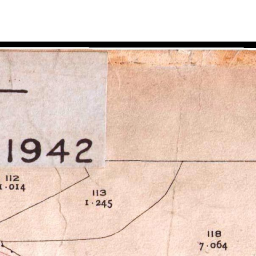 1942
112
1·014
113
1·245
118
7·064